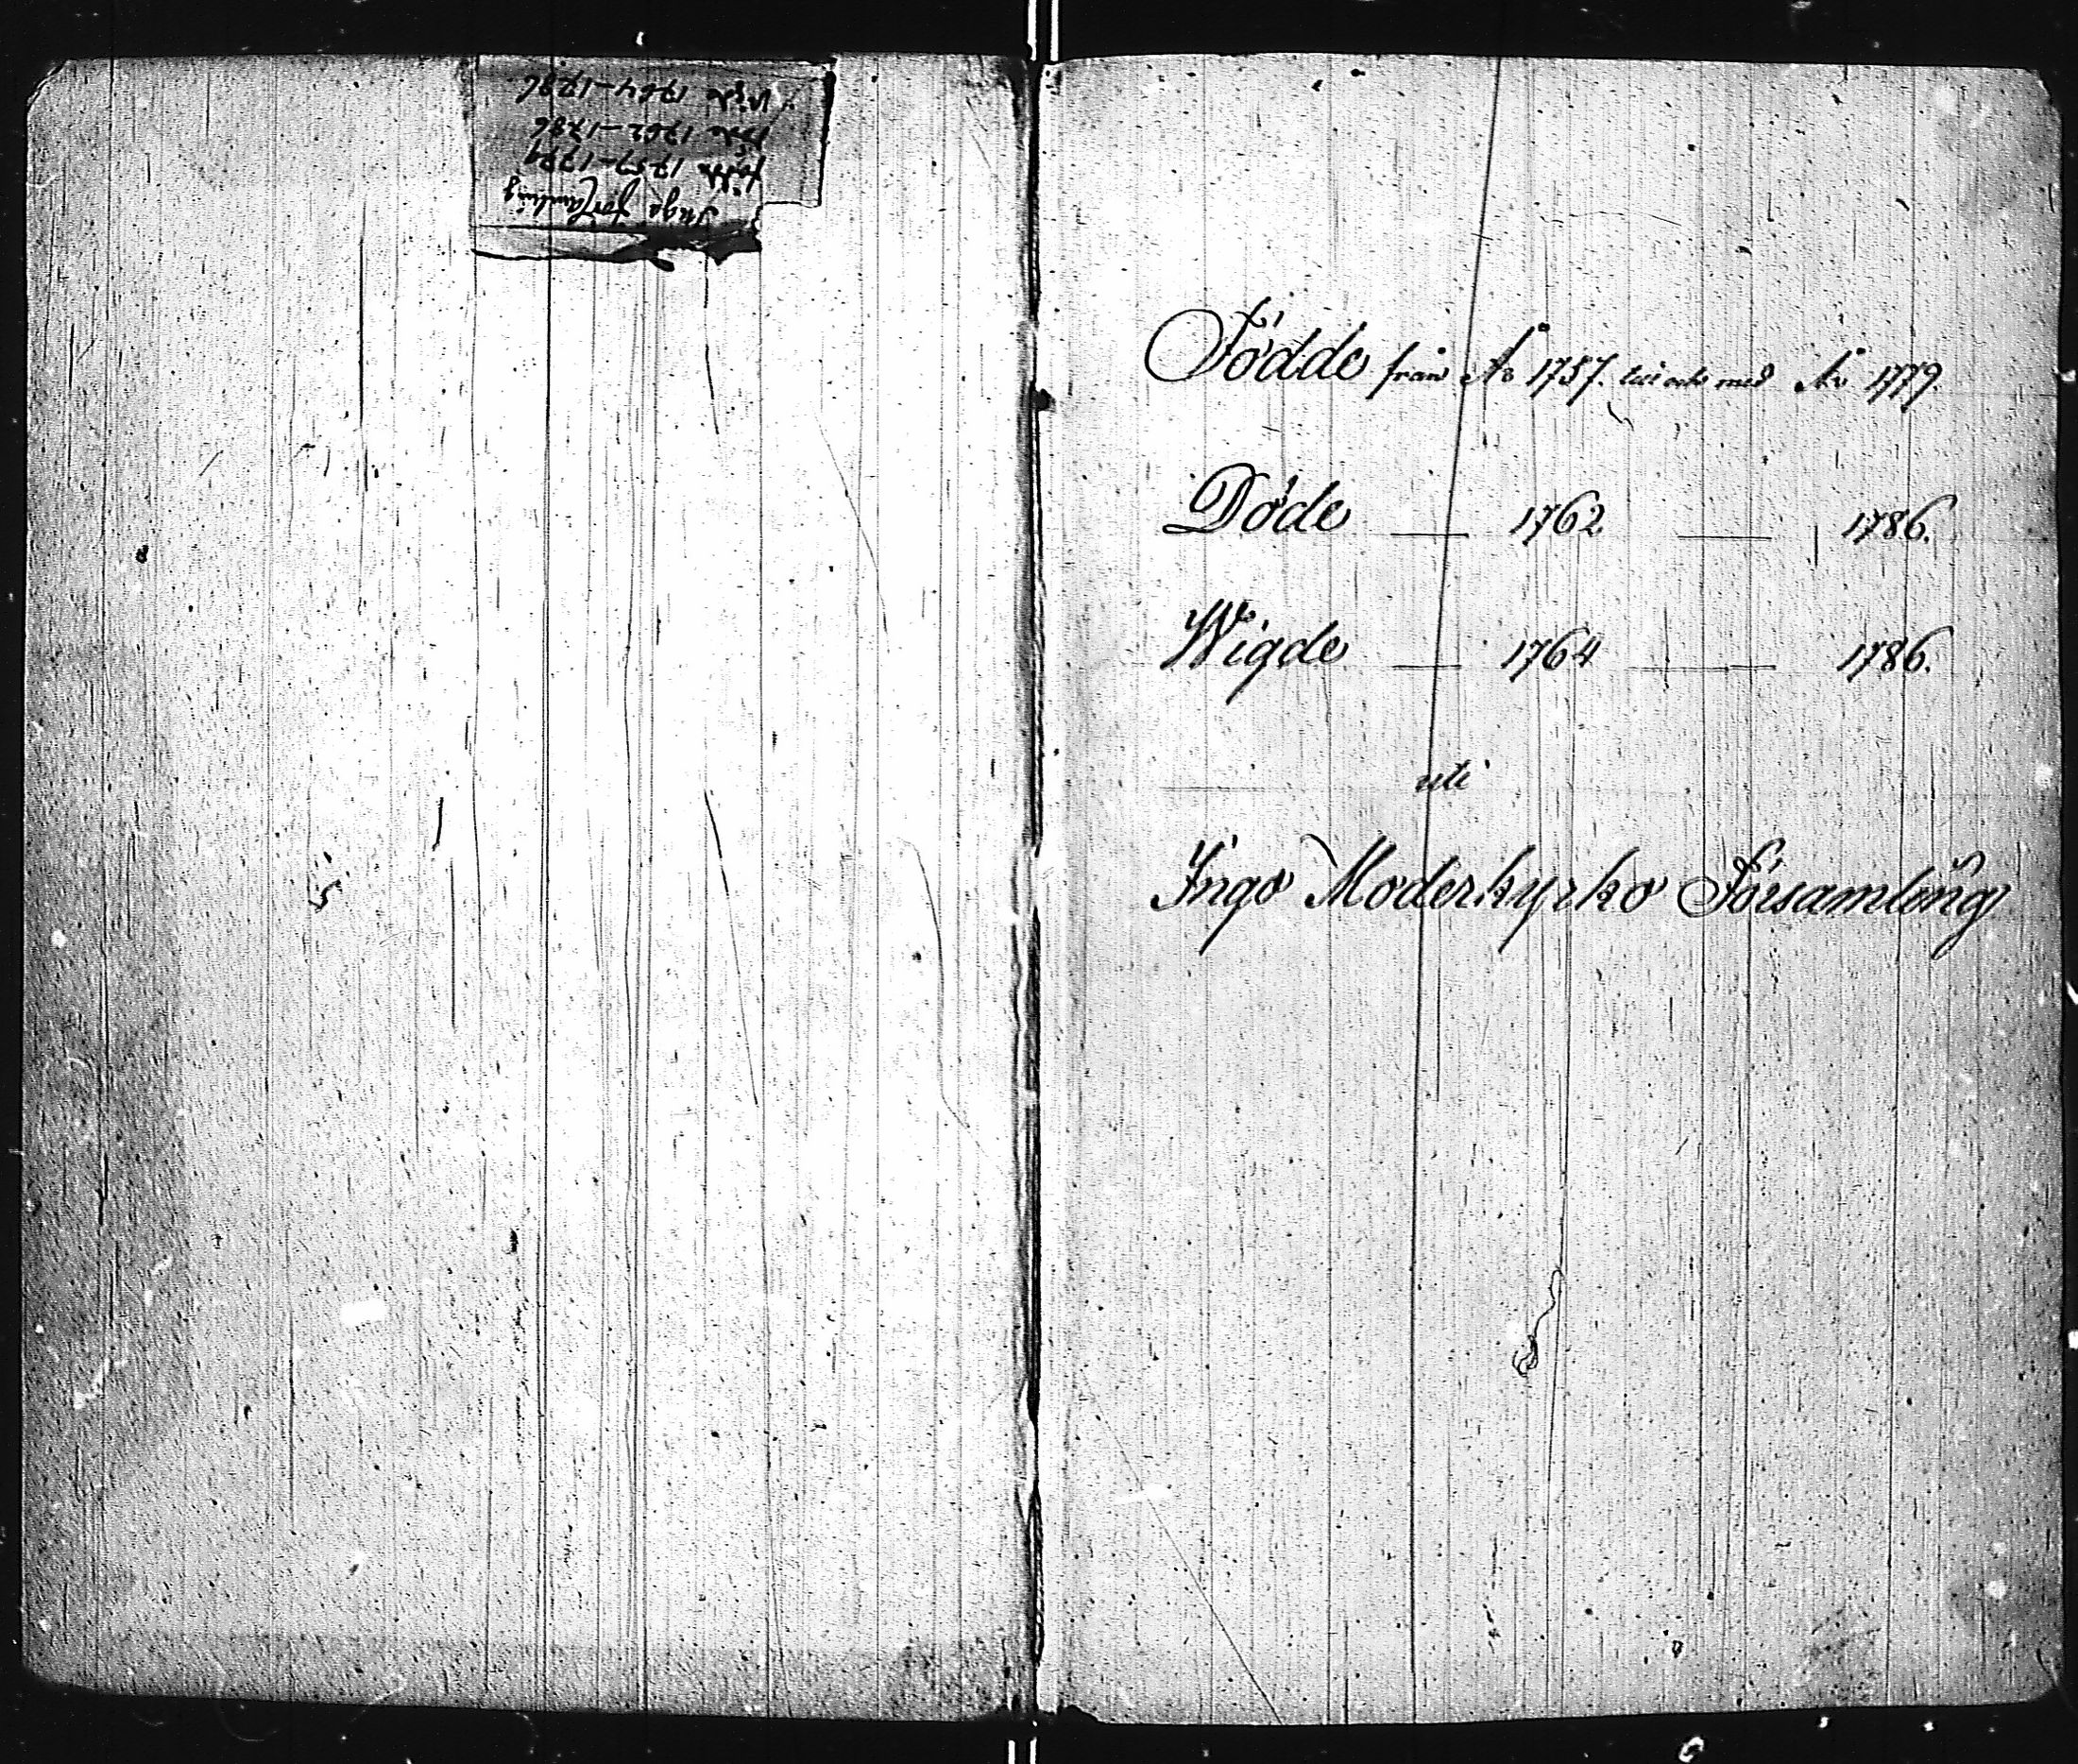 Inga församling
födde 1757–1779
Döde 1762–1786
Vigde 1764–1786
Födde från Åo 1757. till och med Åo 1779.
Döde — 1762 — 1786.
Wigde — 1764 — 1786.
uti
Inga Moderkyrko Församling